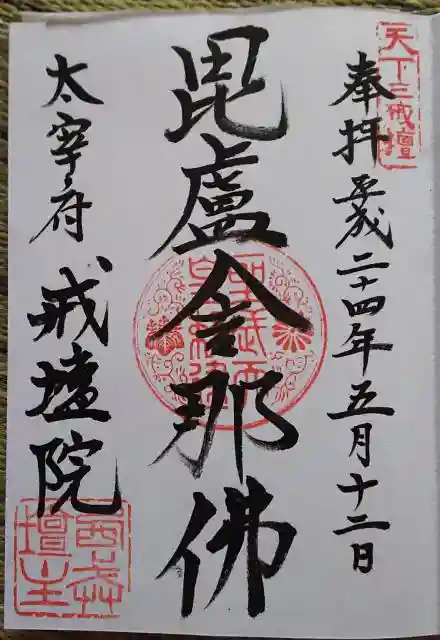 天下三戒壇
奉拝 平成二十四年五月十二日
毘盧舎那佛
太宰府 戒壇院